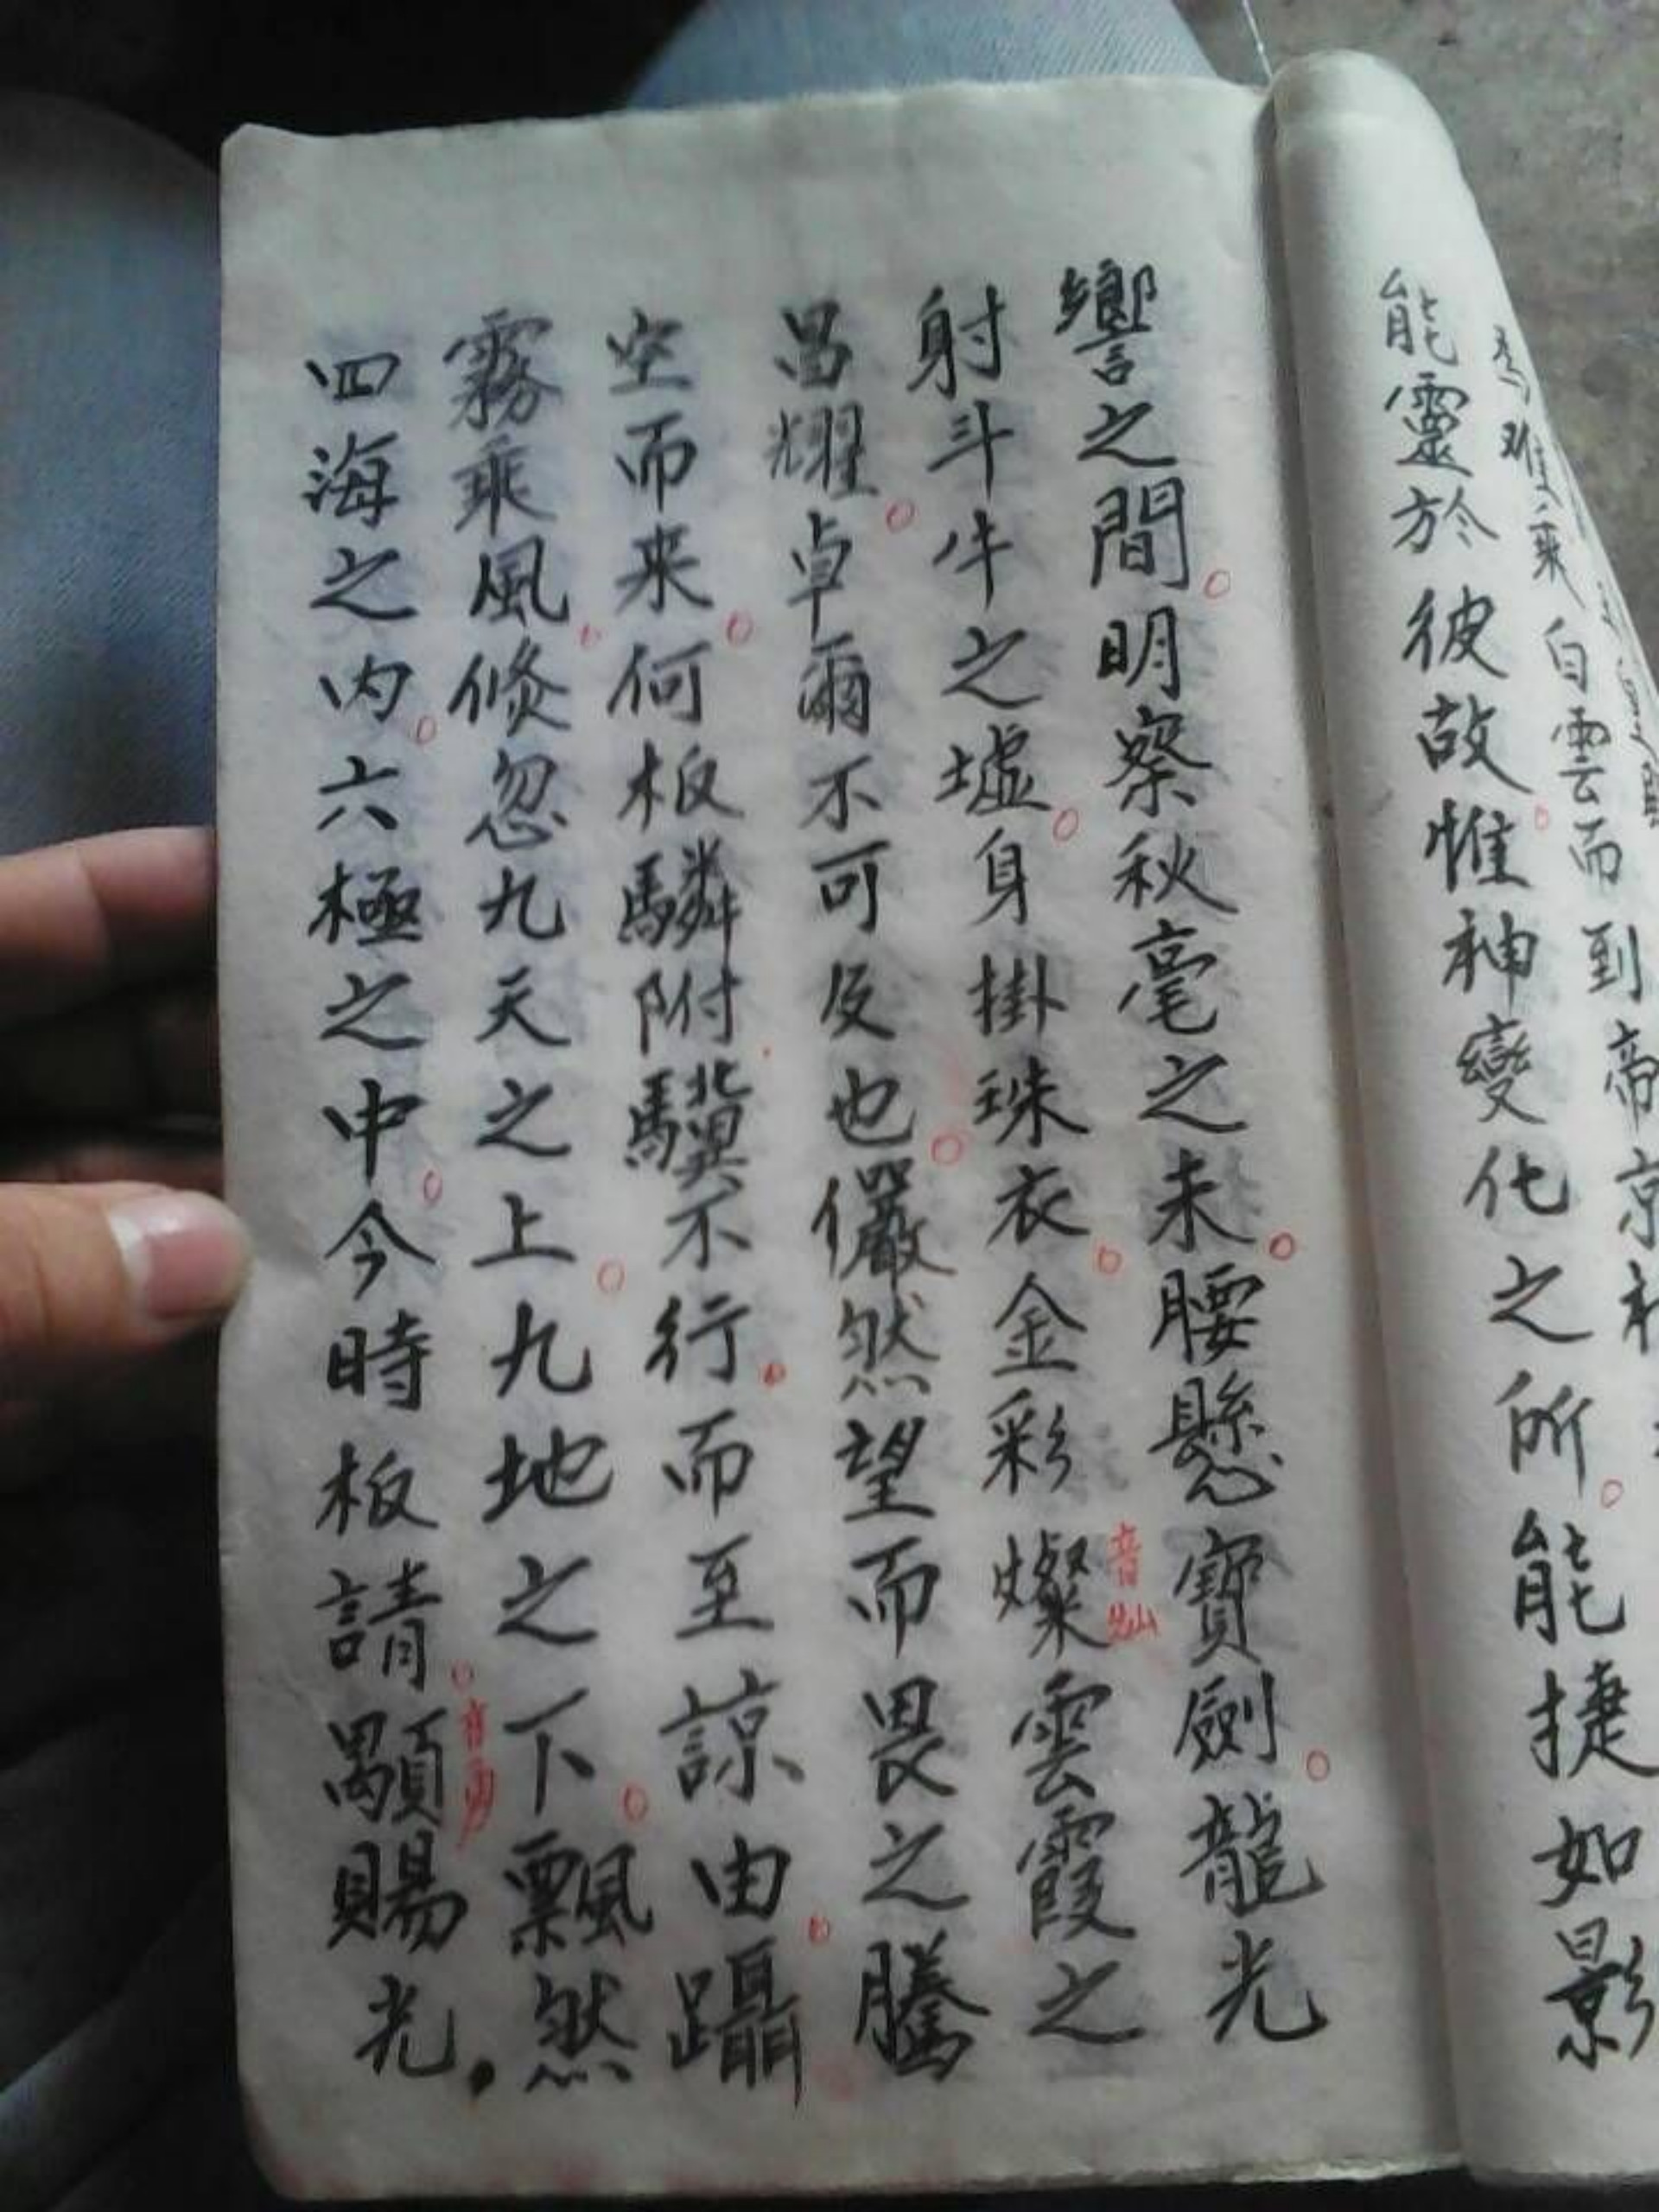 能靈於彼故惟神變化之所能捷如影
響之間明察秋毫之未腰懸寶劍龍光
射斗牛之墟身掛珠衣金彩燦雲霞之
音灿
昌耀卓爾不可及也儼然望而畏之騰
空而来何板驎附驥不行而至諒由躡
霧乘風倏忽九天之上九地之下飄然
四海之内六極之中今時板請顒賜光